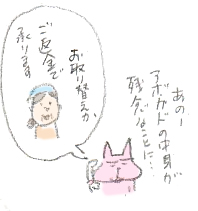 あのー
アボカドの中身が
残念なことに…
お取り替えか
ご返金で
承ります